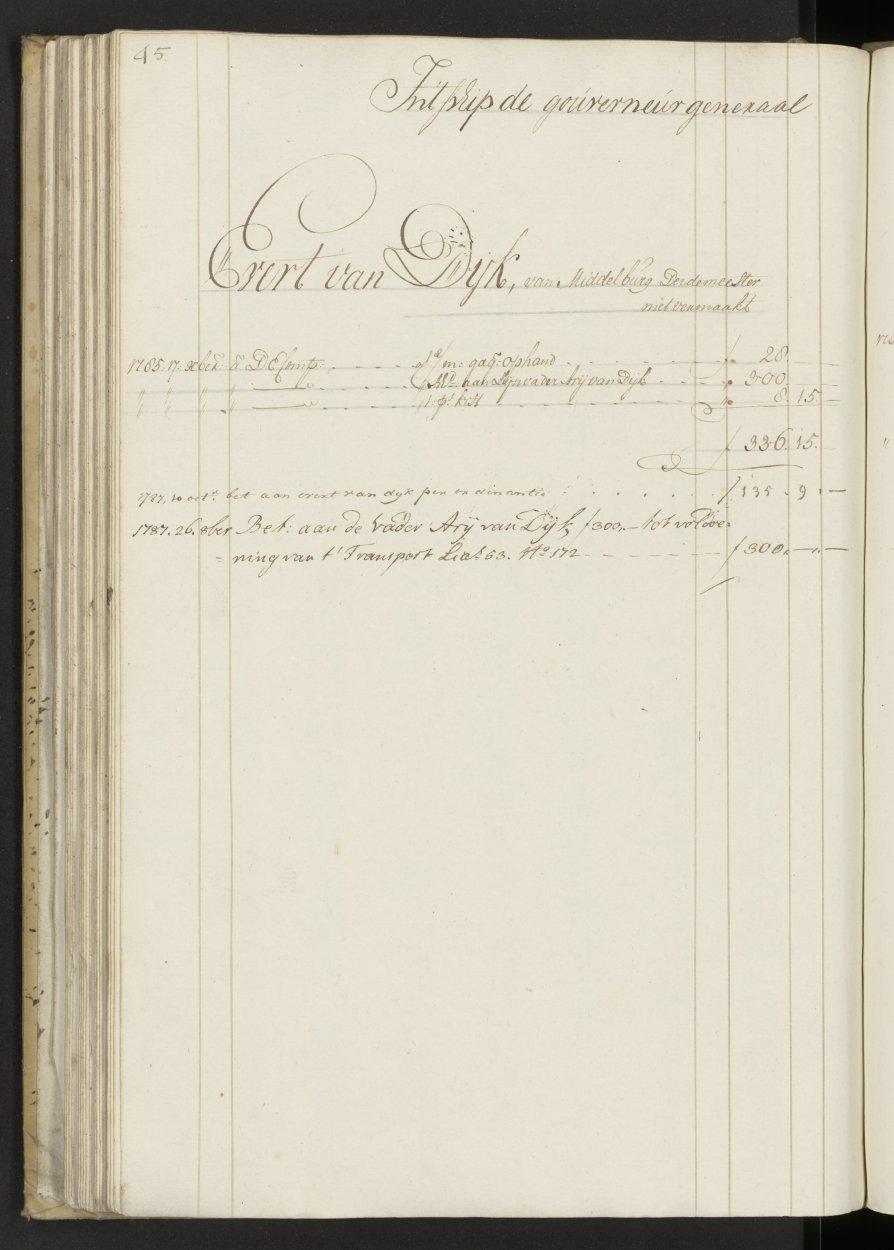 45.
Int schip de gouverneur generaal
Evert van Dijk, van Middelburg Derdemeester
niet vermaakt
1785. 17. xber. a D E Comp. 2/m: gag: ophand ƒ 28.
" " " " " Md. aan zijn vader Arij van Dijk " 300.
" " " " " 1 ps. kist " 8. 15. —
ƒ 336. 15. —
1787, 10 octr. bet aan evert van dyk per ordinantie ƒ 135. 9. —
1787. 26. 8ber Bet: aan de Vader Arij van Dijk ƒ 300,— tot voldoe=
= ning van t' Transport Lias 63. No. 172 ƒ 300. —. —
178
"